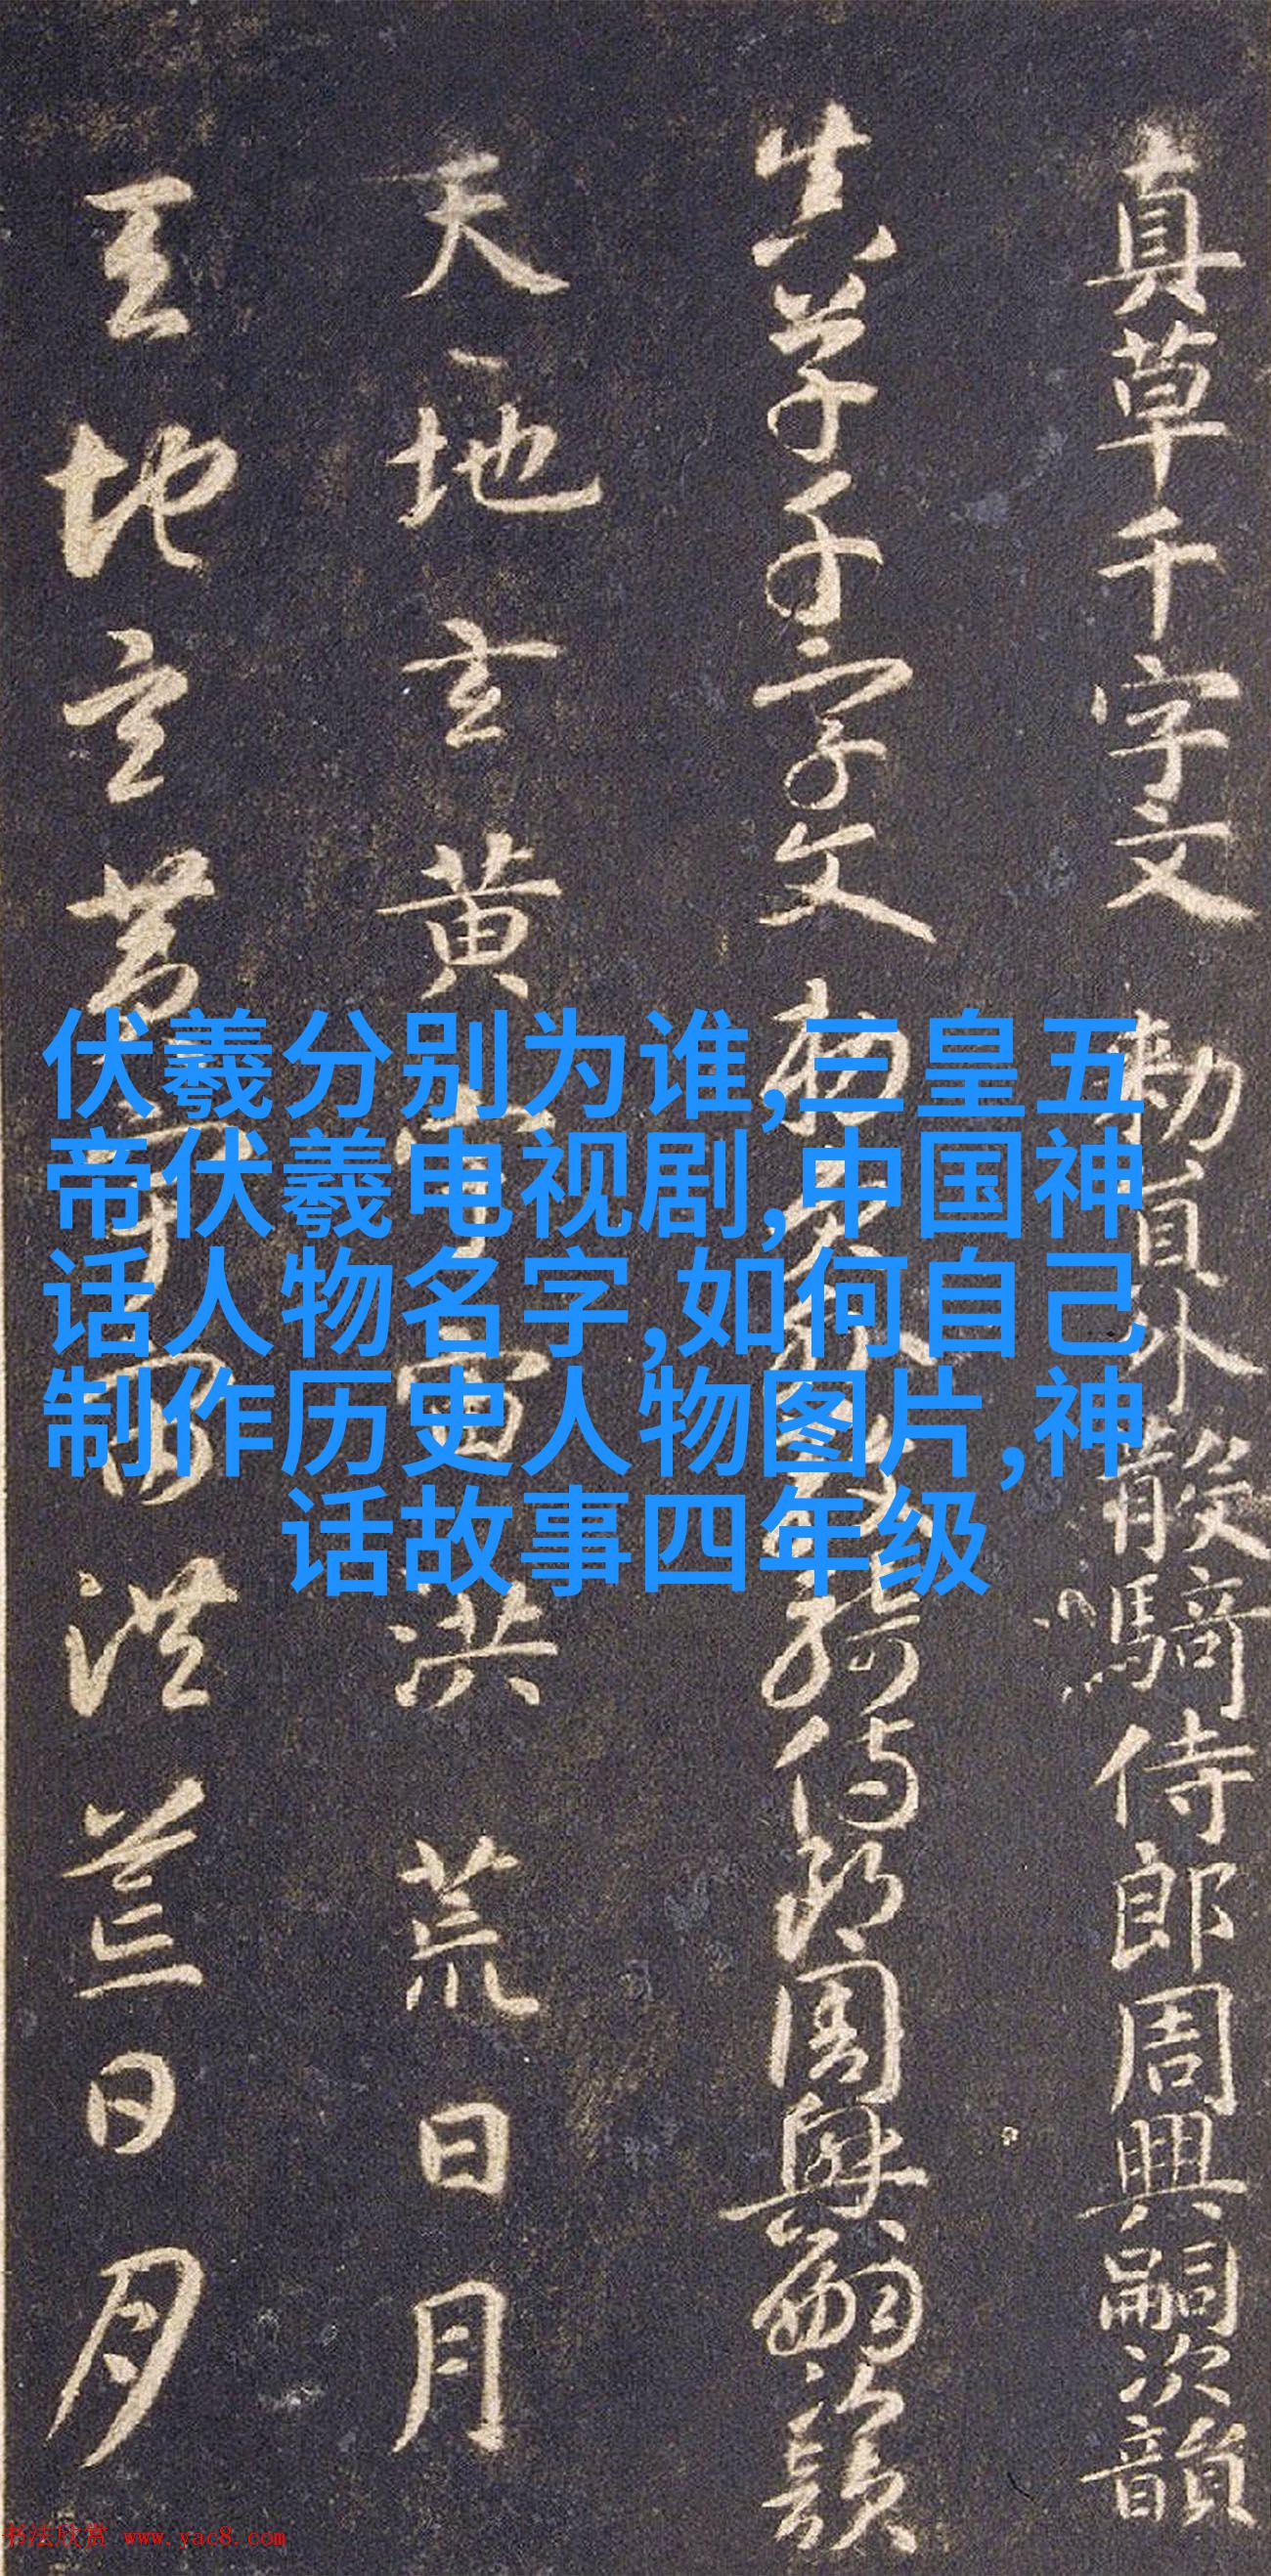 真草千字文勅員外散騎侍郎周興嗣次韻
真草千字文勅員外散騎侍郎周興嗣次韻
天地玄黃宇宙洪荒日月
天地玄黃宇宙洪荒日月
伏羲分别为谁,三皇五
帝伏羲电视剧,中国神
话人物名字,如何自己
制作历史人物图片,神
话故事四年级
书法欣赏 www.yac8.com